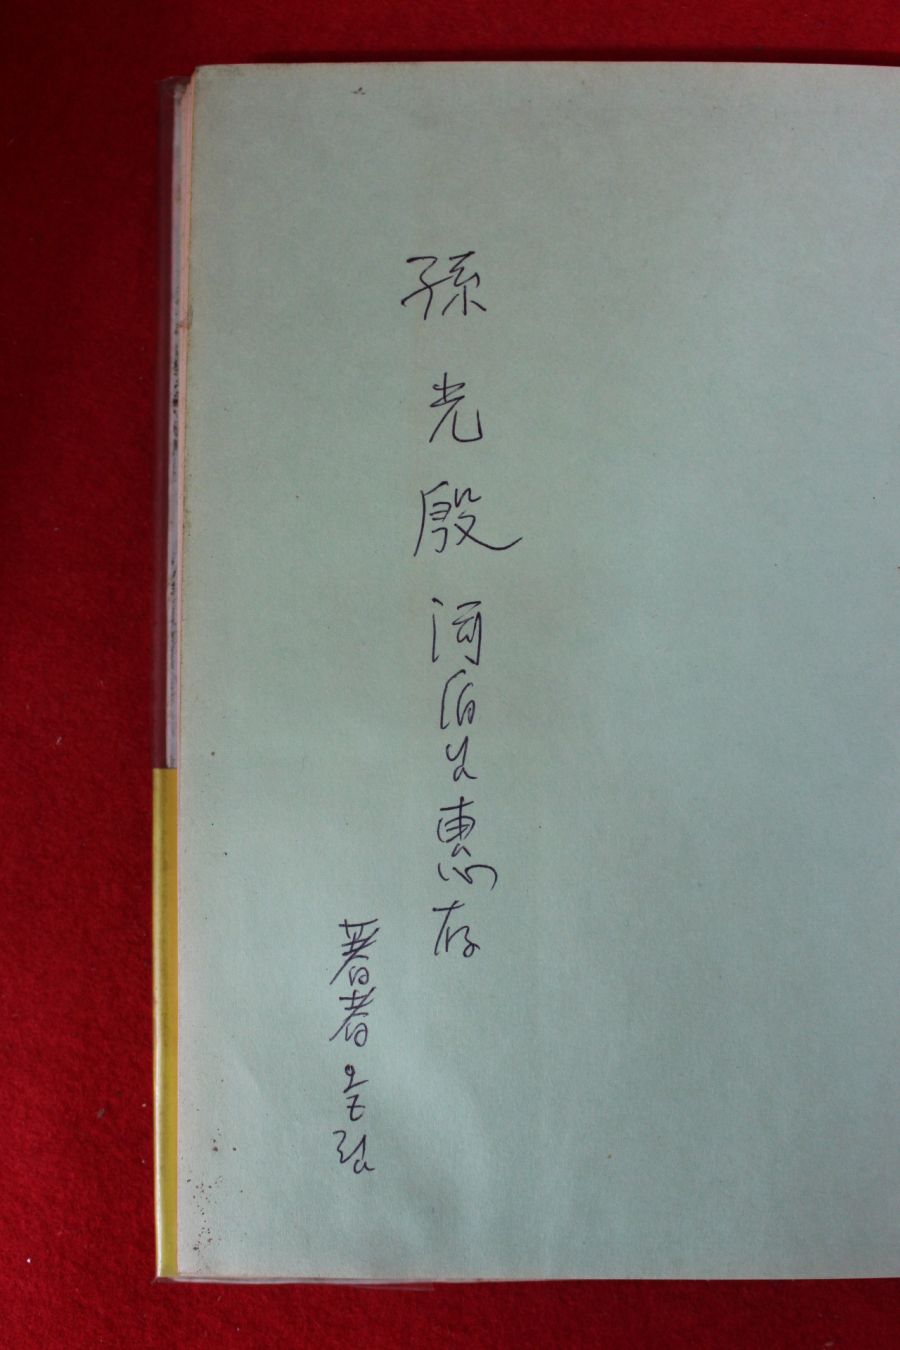 孫光殷 詞伯님 惠存
著者 올림